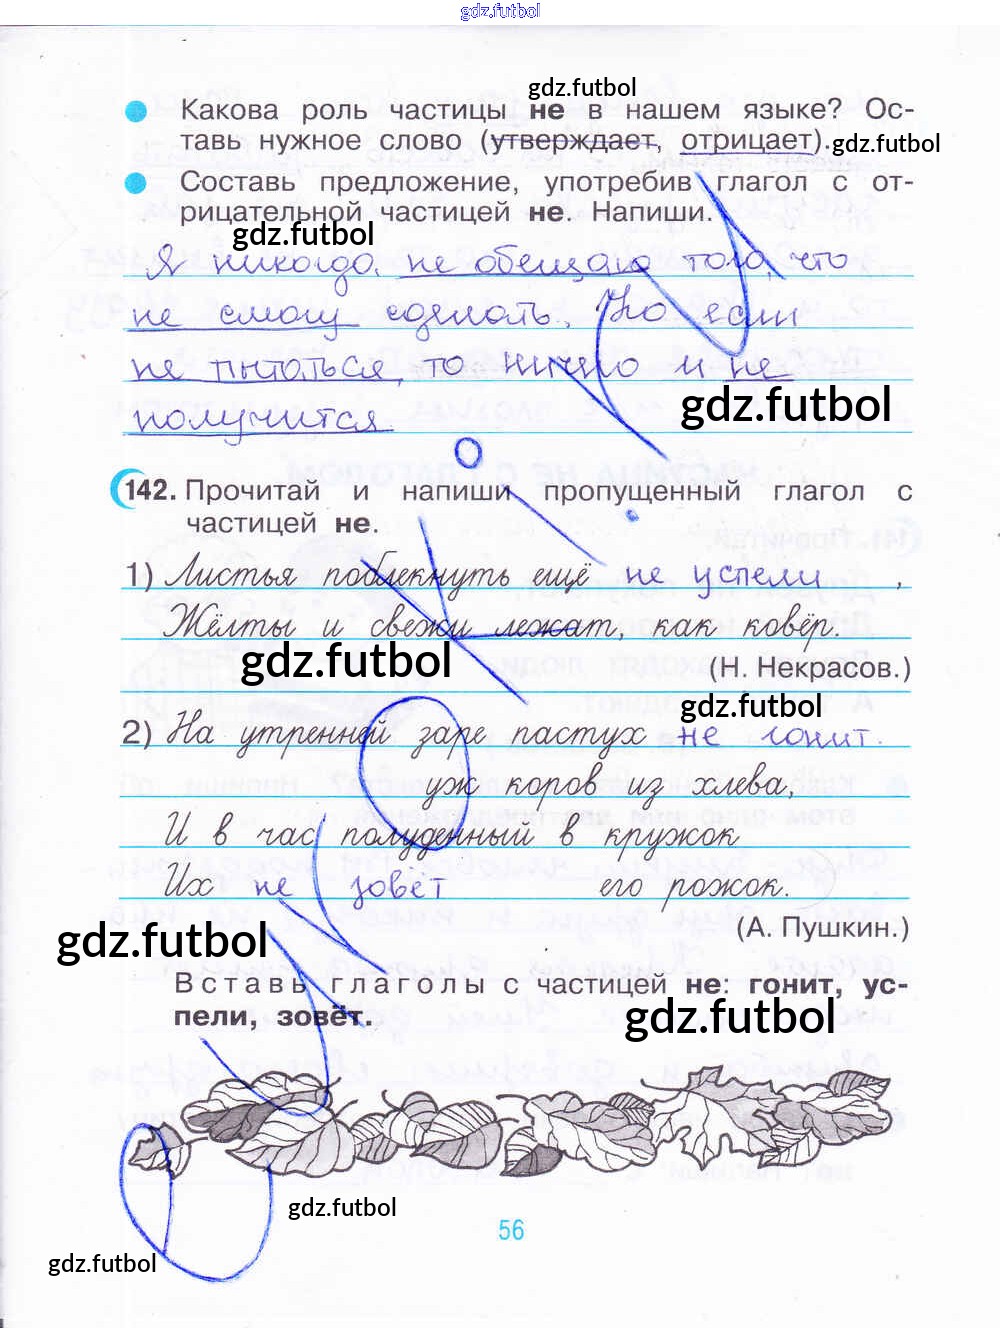 gdz.futbol
gdz.futbol
Какова роль частицы не в нашем языке? Ос-
тавь нужное слово (утверждает, отрицает).
gdz.futbol
Составь предложение, употребив глагол с от-
рицательной частицей не. Напиши.
gdz.futbol
Я никогда не обещаю того, что
не смогу сделать. Но если
не пытаться, то ничего и не
gdz.futbol
получится.
142. Прочитай и напиши пропущенный глагол с
частицей не.
1) Листья поблекнуть ещё не успели ,
Жёлты и свежи лежат, как ковёр.
gdz.futbol
(Н. Некрасов.)
gdz.futbol
2) На утренней заре пастух не гонит.
уж коров из хлева,
И в час полуденный в кружок
Их не зовёт его рожок.
(А. Пушкин.)
gdz.futbol
Вставь глаголы с частицей не: гонит, ус-
пели, зовёт.
gdz.futbol
gdz.futbol
56
gdz.futbol